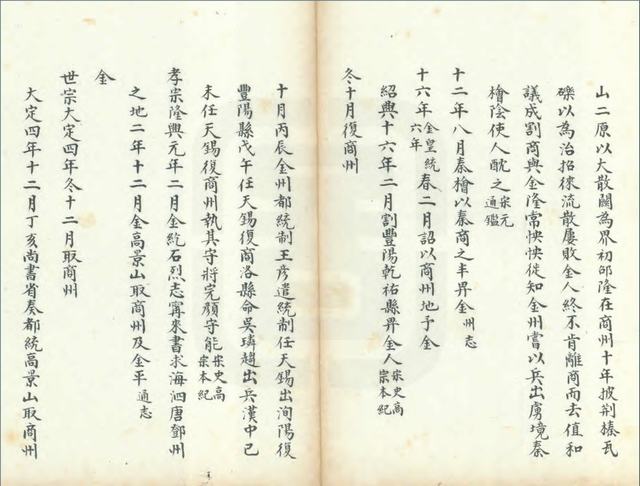 山二原以大散關為界初邵隆在商州十年披荆榛瓦
礫以為治招徠流散屢敗金人終不肯離商而去值和
議成割商與金隆常怏怏徙知金州嘗以兵出虜境秦
檜陰使人酖之宋元通鑑
十二年八月秦檜以秦商之半畀金州志
十六年金皇統六年春二月詔以商州地予金
紹興十六年二月割豐陽乾祐縣畀金人宋史高宗本紀
冬十月復商州
十月丙辰金州都統制王彥遣統制任天錫出洵陽復
豐陽縣戊午任天錫復商洛縣命吳璘趨出兵漢中己
未任天錫復商州執其守將完顏守能宋史高宗本紀
孝宗隆興元年二月金紇石烈志寗來書求海泗唐鄧州
之地二年十二月金高景山取商州及金平通志
金
世宗大定四年冬十二月取商州
大定四年十二月丁亥尚書省奏都統高景山取商州